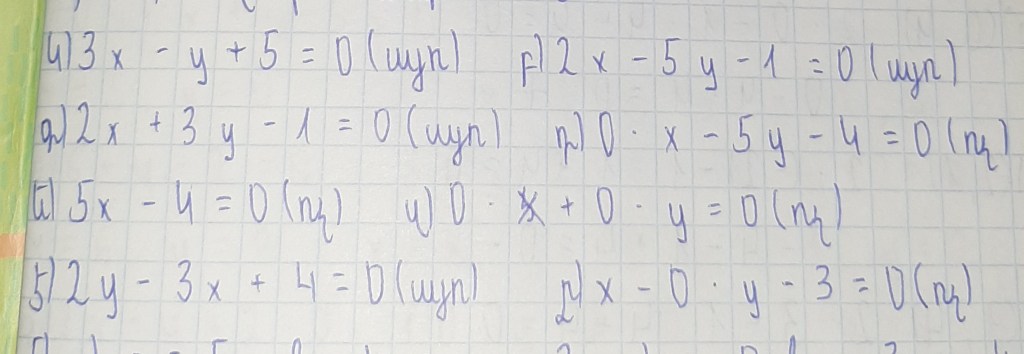 ա) 3x - y + 5 = 0 (այո) բ) 2x - 5y - 1 = 0 (այո)
գ) 2x + 3y - 1 = 0 (այո) դ) 0 · x - 5y - 4 = 0 (ոչ)
ե) 5x - 4 = 0 (ոչ) զ) 0 · x + 0 · y = 0 (ոչ)
է) 2y - 3x + 4 = 0 (այո) ը) x - 0 · y - 3 = 0 (ոչ)